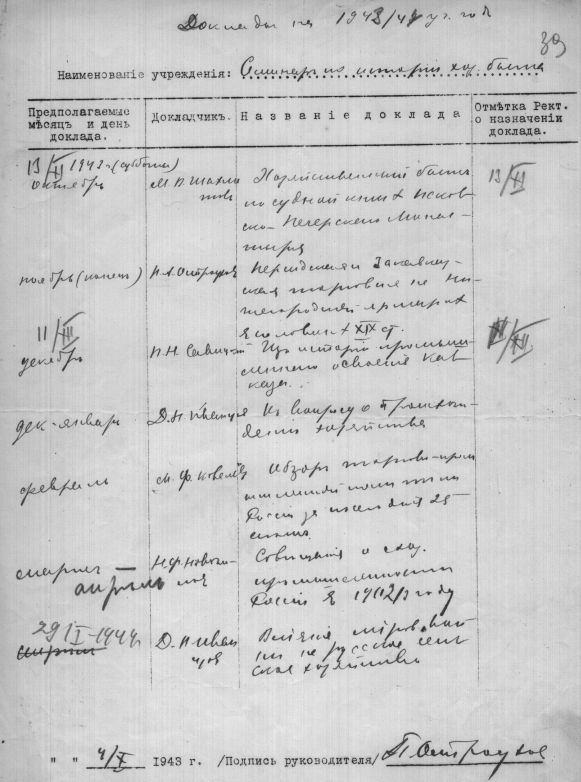 Доклады на 1943/44 уч. год
39
Наименованіе учрежденія: Семинаръ по исторіи хоз. быта
Предполагаемые мѣсяцъ и день доклада.
Докладчикъ.
Названіе доклада
Отмѣтка Рект. о назначеніи доклада.
13/XI 1943 г. (суббота)
октябрь
М. В. Шахматовъ
Хозяйственный бытъ
по судной книгѣ Псков-
ско-Печерскаго Монас-
тыря
13/XI
ноябрь (конецъ)
П. А. Остроуховъ
Персидская и Закавказ-
ская торговля на Ни-
жегородской ярмаркѣ
XIX ст.
11/XII
декабрь
П. Н. Савицкій
Изъ исторіи промыш-
леннаго освоенія Кав-
каза.
XII
дек-январь
Д. Н. Иванцовъ
Къ вопросу о происхож-
деніи хозяйства
февраль
М. Ф. Ковалевъ
Обзоръ торгово-пром
ышленной политики
Россіи за послѣднія 25
мартъ
апрѣль
Совѣщанія о
промышленности
Россіи въ 1912/3 году
29/I-1944 г.
Д. Н. Иван
цовъ
Вліяніе міровой
на русское сель
ское хозяйство
" " 4/X 1943 г. /Подпись руководителя/ П. Остроуховъ